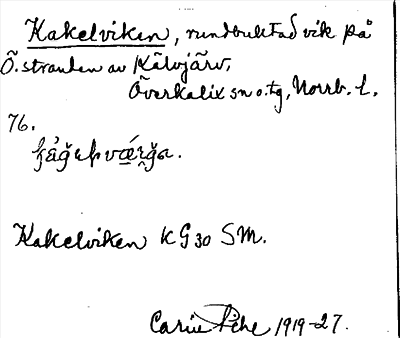 Kakelviken, rundbuktad vik på
Ö. stranden av Kälvjärv,
Överkalix sn o. tg, Norrb. l.
76.
Kakelviken K G 30 SM.
Carin Pihl 1919-27.